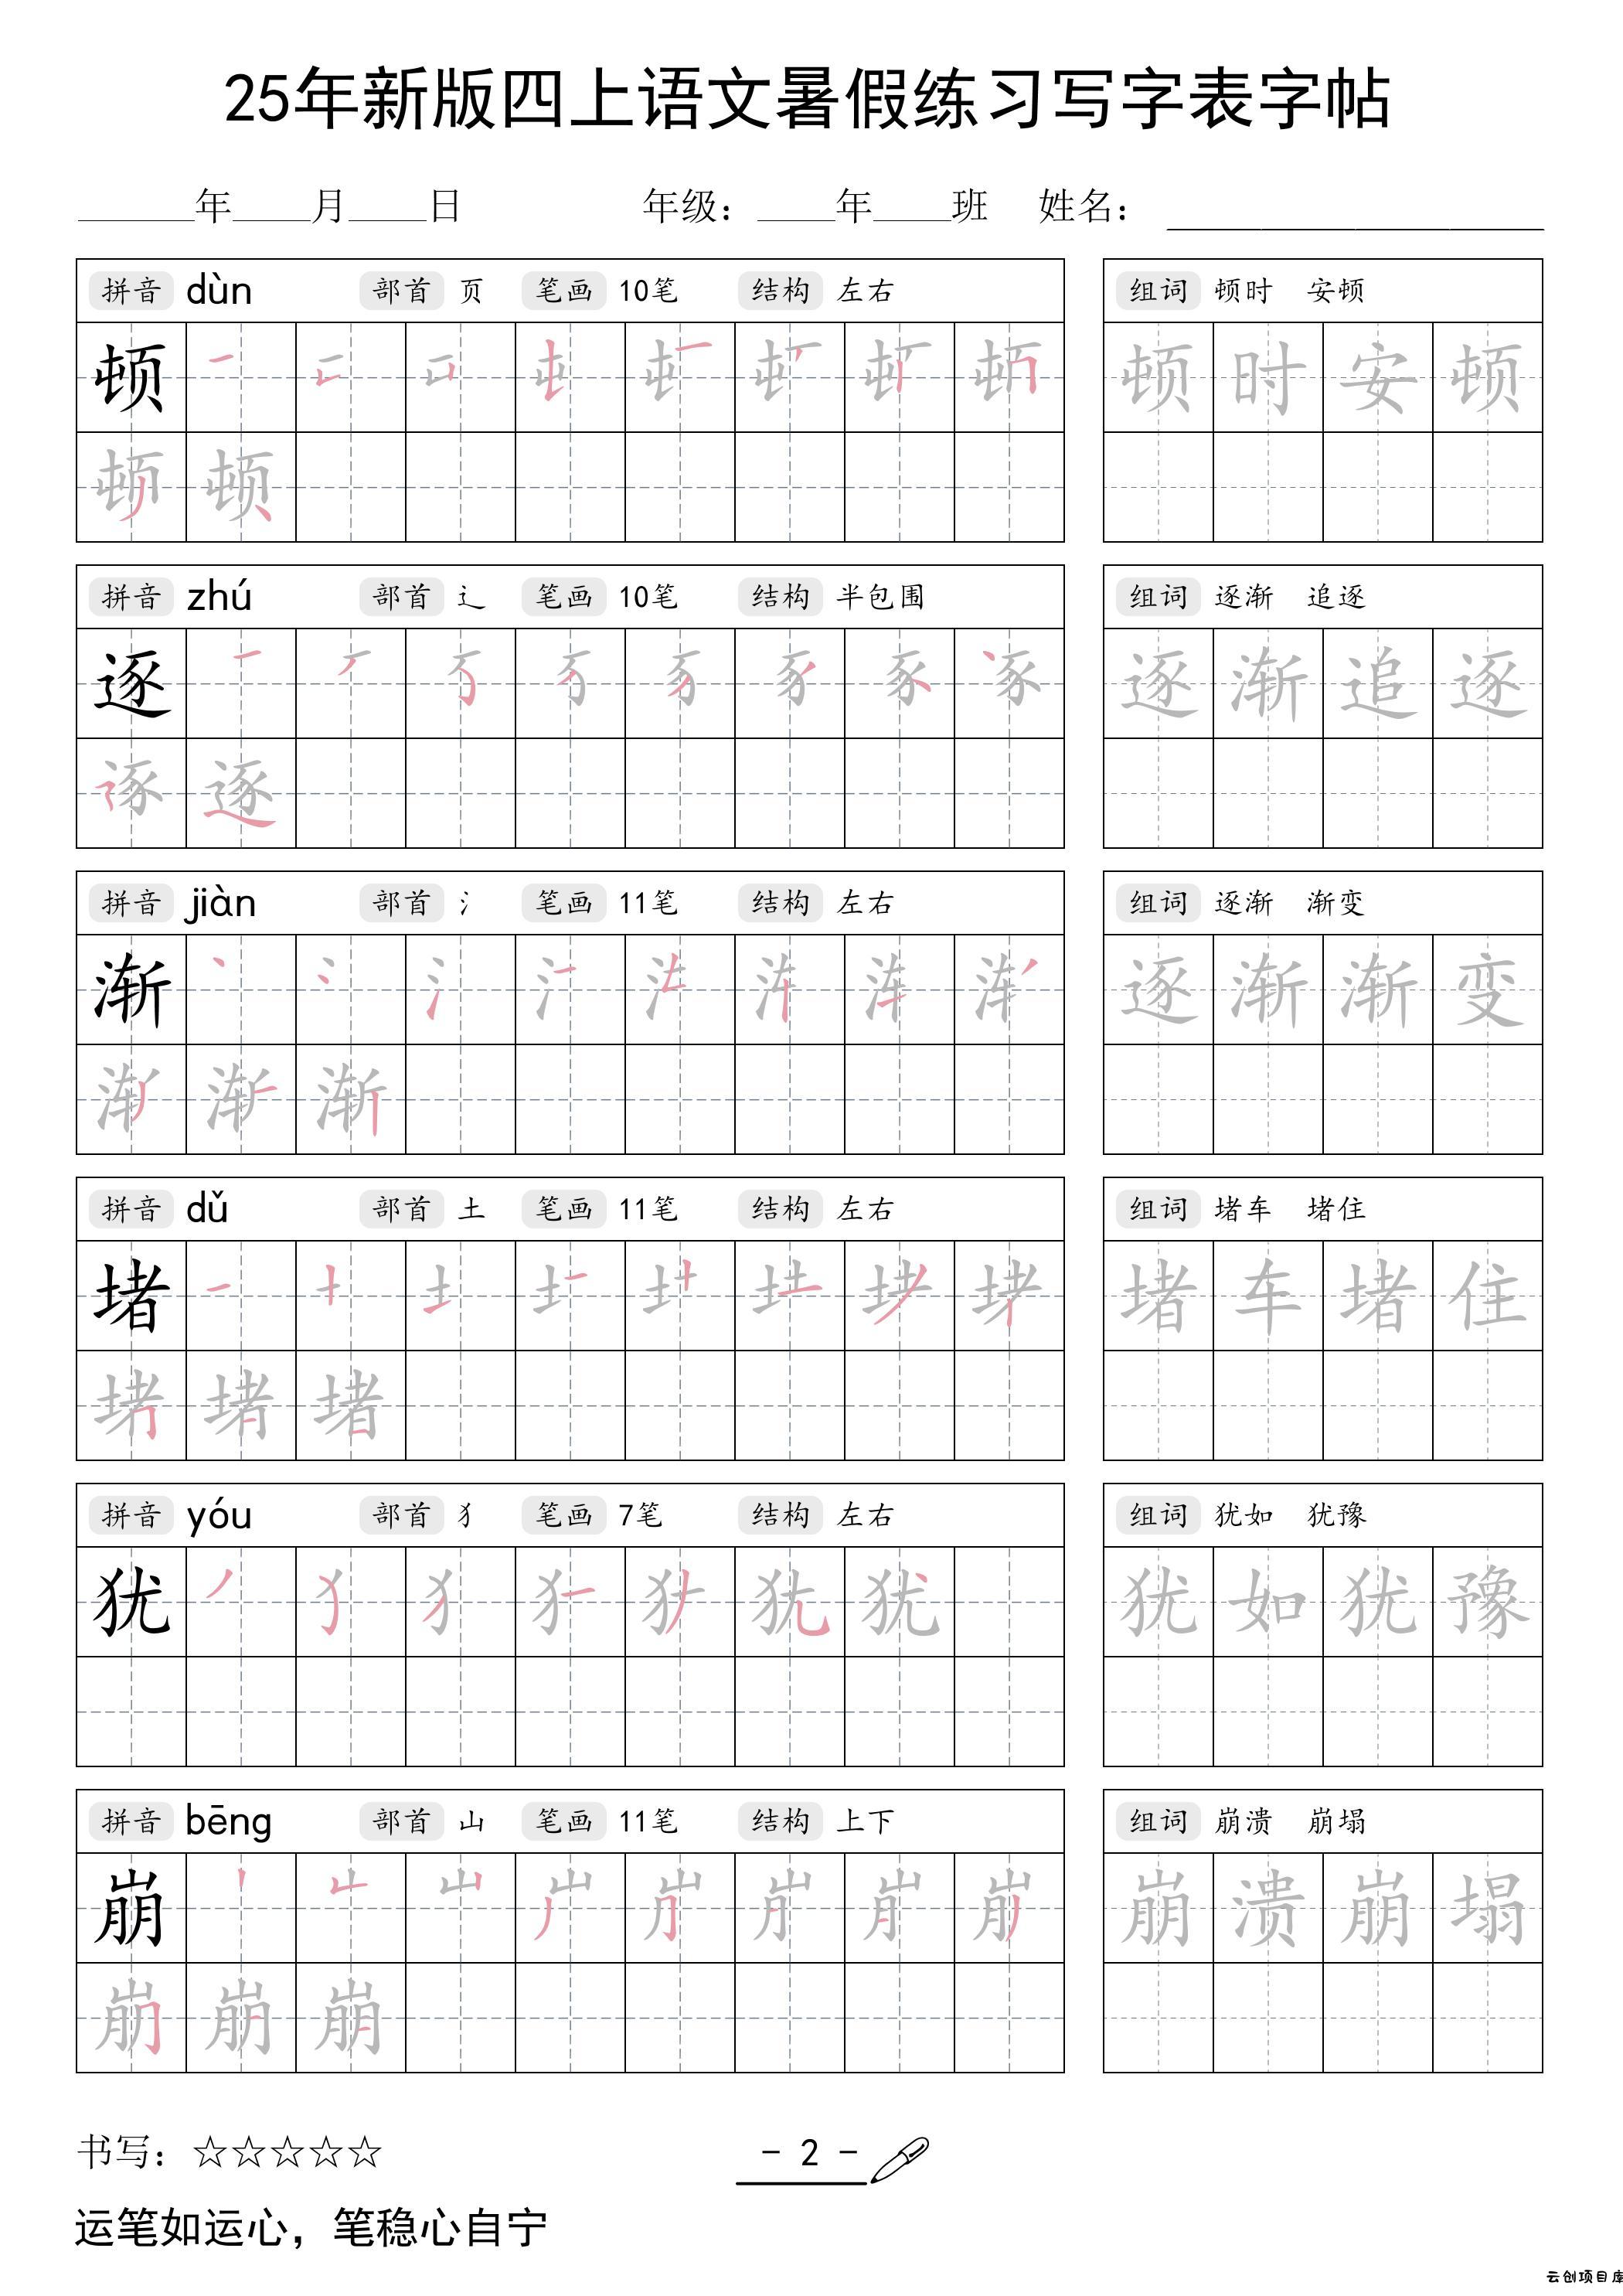 25年新版四上语文暑假练习写字表字帖
______年____月____日 年级：____年____班 姓名：____________________
拼音 dùn 部首 页 笔画 10笔 结构 左右 组词 顿时 安顿
顿 顿 时 安 顿
顿 顿
拼音 zhú 部首 辶 笔画 10笔 结构 半包围 组词 逐渐 追逐
逐 逐 渐 追 逐
逐
拼音 jiàn 部首 氵 笔画 11笔 结构 左右 组词 逐渐 渐变
渐 逐 渐 渐 变
渐
拼音 dǔ 部首 土 笔画 11笔 结构 左右 组词 堵车 堵住
堵 堵 车 堵 住
堵
拼音 yóu 部首 犭 笔画 7笔 结构 左右 组词 犹如 犹豫
犹 犹 犹 如 犹 豫
拼音 bēng 部首 山 笔画 11笔 结构 上下 组词 崩溃 崩塌
崩 崩 溃 崩 塌
崩
书写：☆☆☆☆☆
- 2 -
运笔如运心，笔稳心自宁
云创项目库